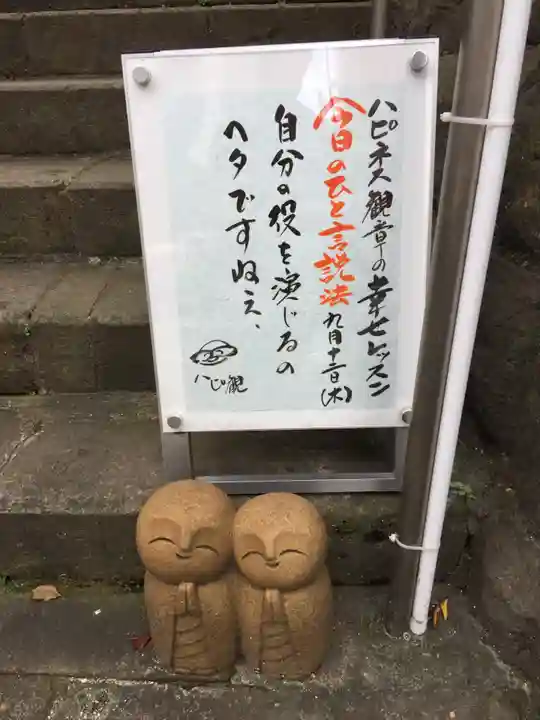 ハピネス観章の幸せレッスン
今日のひと言説法 九月十二日(木)
自分の役を演じるの
ヘタですねえ、
ハピ観